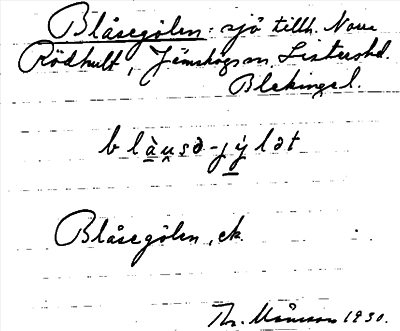 Blåsegölen - sjö tillh. Norra
Rödhult, Jämshögs sn, Listers hd.
Blekinge l.
blàu̯sə-jy̯lət
Blåsegölen, ek.
Th. Månsson 1930.